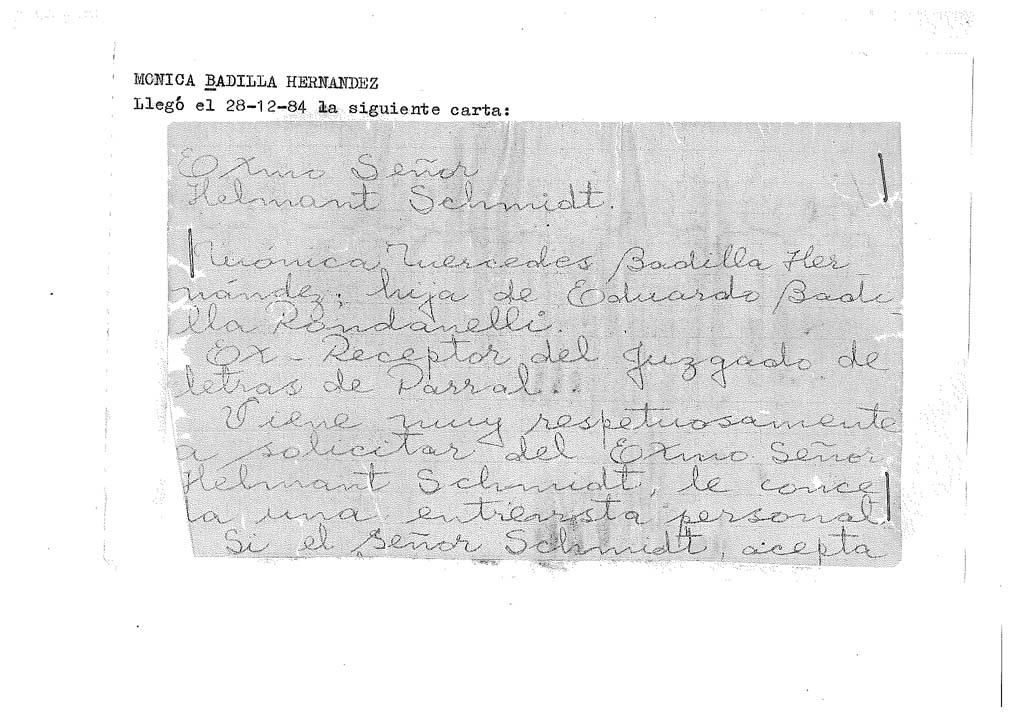 MONICA BADILLA HERNANDEZ
Llegó el 28-12-84 la siguiente carta:
Exmo Señor
Helmant Schmidt.
Mónica Mercedes Badilla Her
nández; hija de Eduardo Badi
lla Rondanelli.
Ex-Receptor del Juzgado de
letras de Parral...
Viene muy respetuosamente
a solicitar del Exmo. Señor
Helmant Schmidt, le conce
da una entrevista personal.
Si el Señor Schmidt, acepta